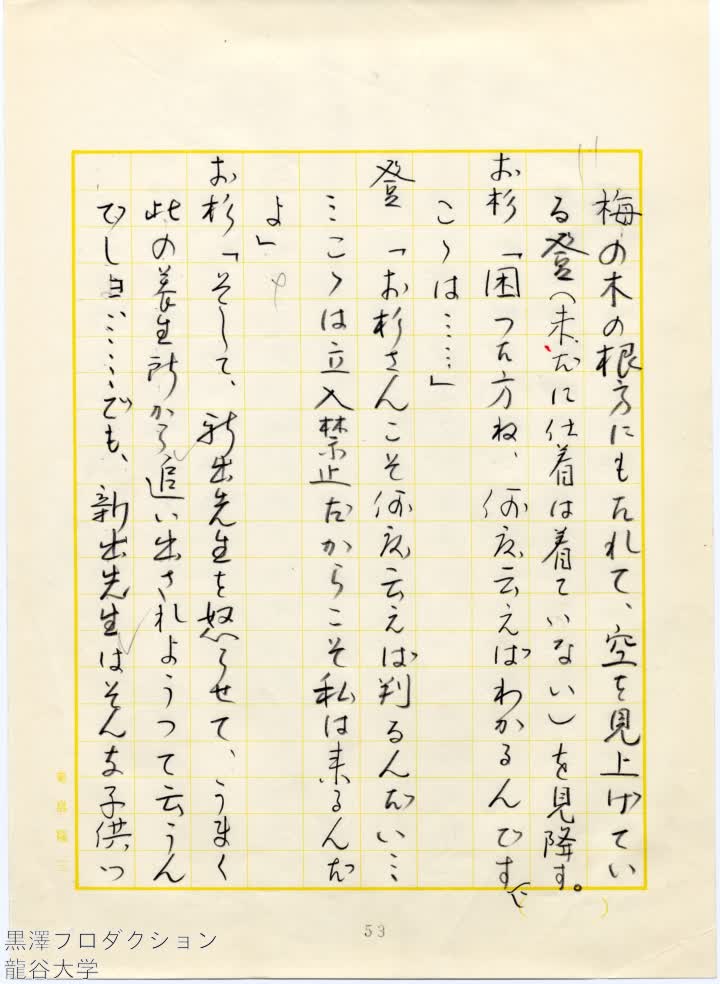 梅の木の根方にもたれて、空を見上げてい
る登(未だに仕着は着ていない)を見降す。
お杉「困つた方ね、何度云えばわかるんです
こゝは……」
登「お杉さんこそ何度云えば判るんだい…
…こゝは立入禁止だからこそ私は来るんだ
よ」
お杉「そして、新出先生を怒らせて、うまく
此の養生所から追い出されようつて云うん
でしョ……でも、新出先生はそんな子供つ
53
黒澤プロダクション
龍谷大学